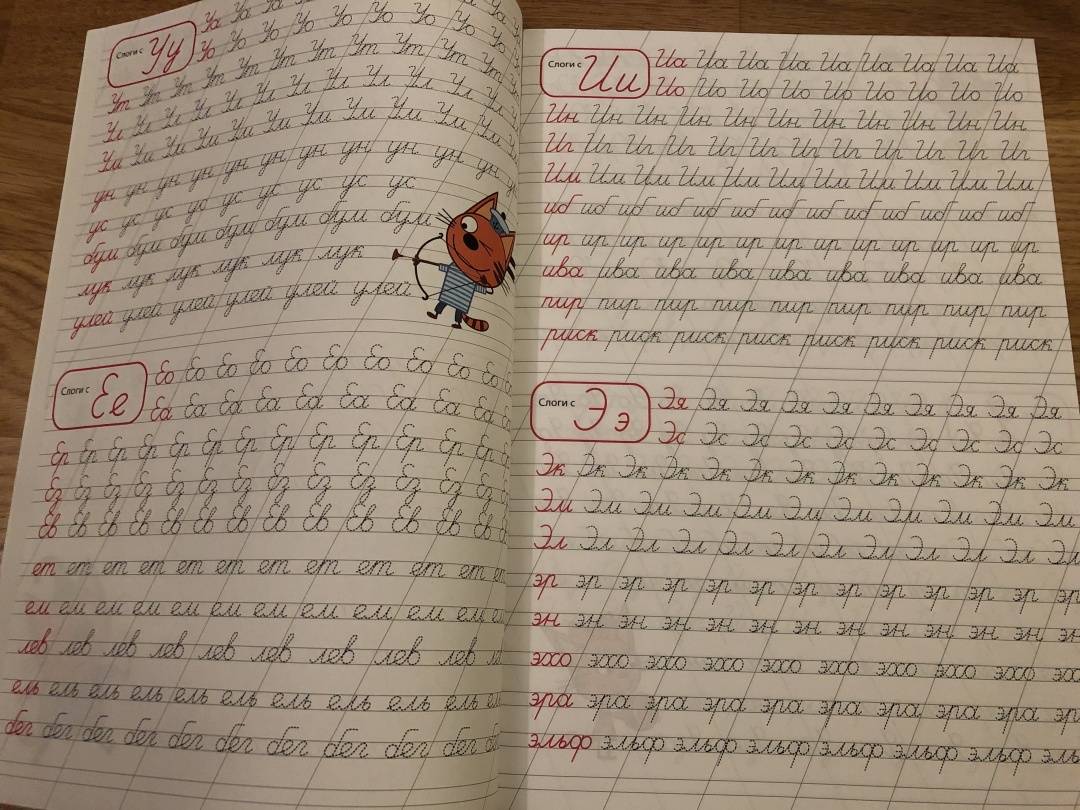 Слоги с Уу Уа Уа Уа Уа Уа Уа Уа
Уо Уо Уо Уо Уо Уо Уо Уо
Ут Ут Ут Ут Ут Ут Ут Ут Ут Ут Ут
Ул Ул Ул Ул Ул Ул Ул Ул Ул Ул Ул Ул
Ум Ум Ум Ум Ум Ум Ум Ум Ум Ум Ум
ун ун ун ун ун ун ун ун ун ун ун
ус ус ус ус ус ус ус ус ус
бум бум бум бум бум бум бум
лук лук лук лук лук лук
улей улей улей улей улей улей
Слоги с Ее Ео Ео Ео Ео Ео Ео Ео Ео Ео Ео
Еа Еа Еа Еа Еа Еа Еа Еа Еа
Ер Ер Ер Ер Ер Ер Ер Ер Ер Ер Ер Ер Ер
Ез Ез Ез Ез Ез Ез Ез Ез Ез Ез Ез Ез Ез
Ев Ев Ев Ев Ев Ев Ев Ев Ев Ев Ев Ев Ев
ет ет ет ет ет ет ет ет ет ет ет
ем ем ем ем ем ем ем ем ем ем ем
лев лев лев лев лев лев лев лев лев
ель ель ель ель ель ель ель ель ель ель
бег бег бег бег бег бег бег бег бег бег
Слоги с Ии Иа Иа Иа Иа Иа Иа Иа Иа Иа
Ио Ио Ио Ио Ио Ио Ио Ио Ио
Ин Ин Ин Ин Ин Ин Ин Ин Ин Ин Ин
Иг Иг Иг Иг Иг Иг Иг Иг Иг Иг Иг Иг
Им Им Им Им Им Им Им Им Им Им Им
иб иб иб иб иб иб иб иб иб иб иб иб иб
ир ир ир ир ир ир ир ир ир ир ир ир ир
ива ива ива ива ива ива ива ива ива
пир пир пир пир пир пир пир пир пир
риск риск риск риск риск риск риск риск
Слоги с Ээ Эя Эя Эя Эя Эя Эя Эя Эя Эя Эя
Эс Эс Эс Эс Эс Эс Эс Эс Эс Эс
Эк Эк Эк Эк Эк Эк Эк Эк Эк Эк Эк Эк Эк
Эм Эм Эм Эм Эм Эм Эм Эм Эм Эм Эм
Эл Эл Эл Эл Эл Эл Эл Эл Эл Эл Эл Эл
эр эр эр эр эр эр эр эр эр эр эр эр эр
эн эн эн эн эн эн эн эн эн эн эн эн эн
эхо эхо эхо эхо эхо эхо эхо эхо эхо
эра эра эра эра эра эра эра эра эра
эльф эльф эльф эльф эльф эльф эльф